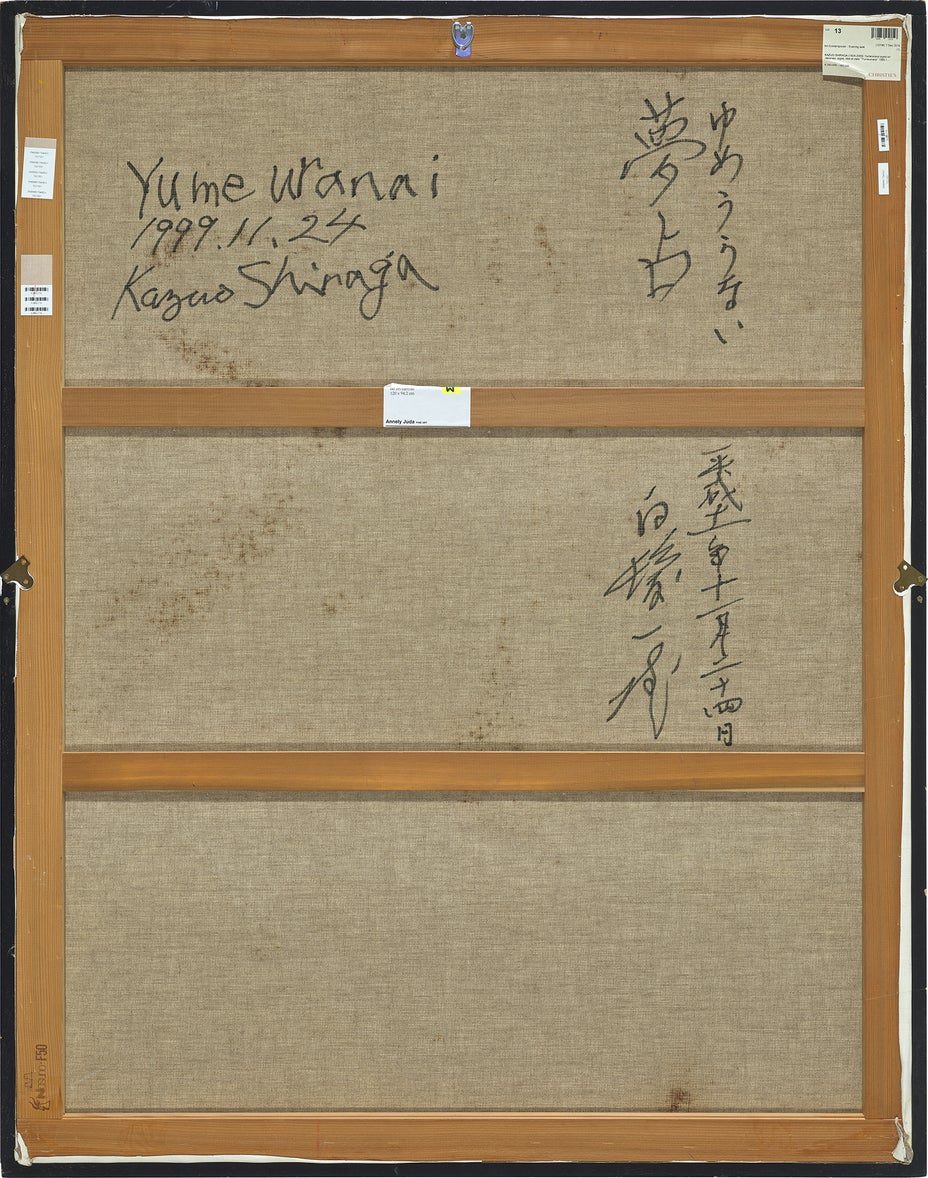 Yume Uranai
1999.11.24
Kazuo Shiraga
ゆめうらない
夢占
平成十一年十一月二十四日
白髪一雄
13
CHRISTIE'S
Annely Juda FINE ART
F50